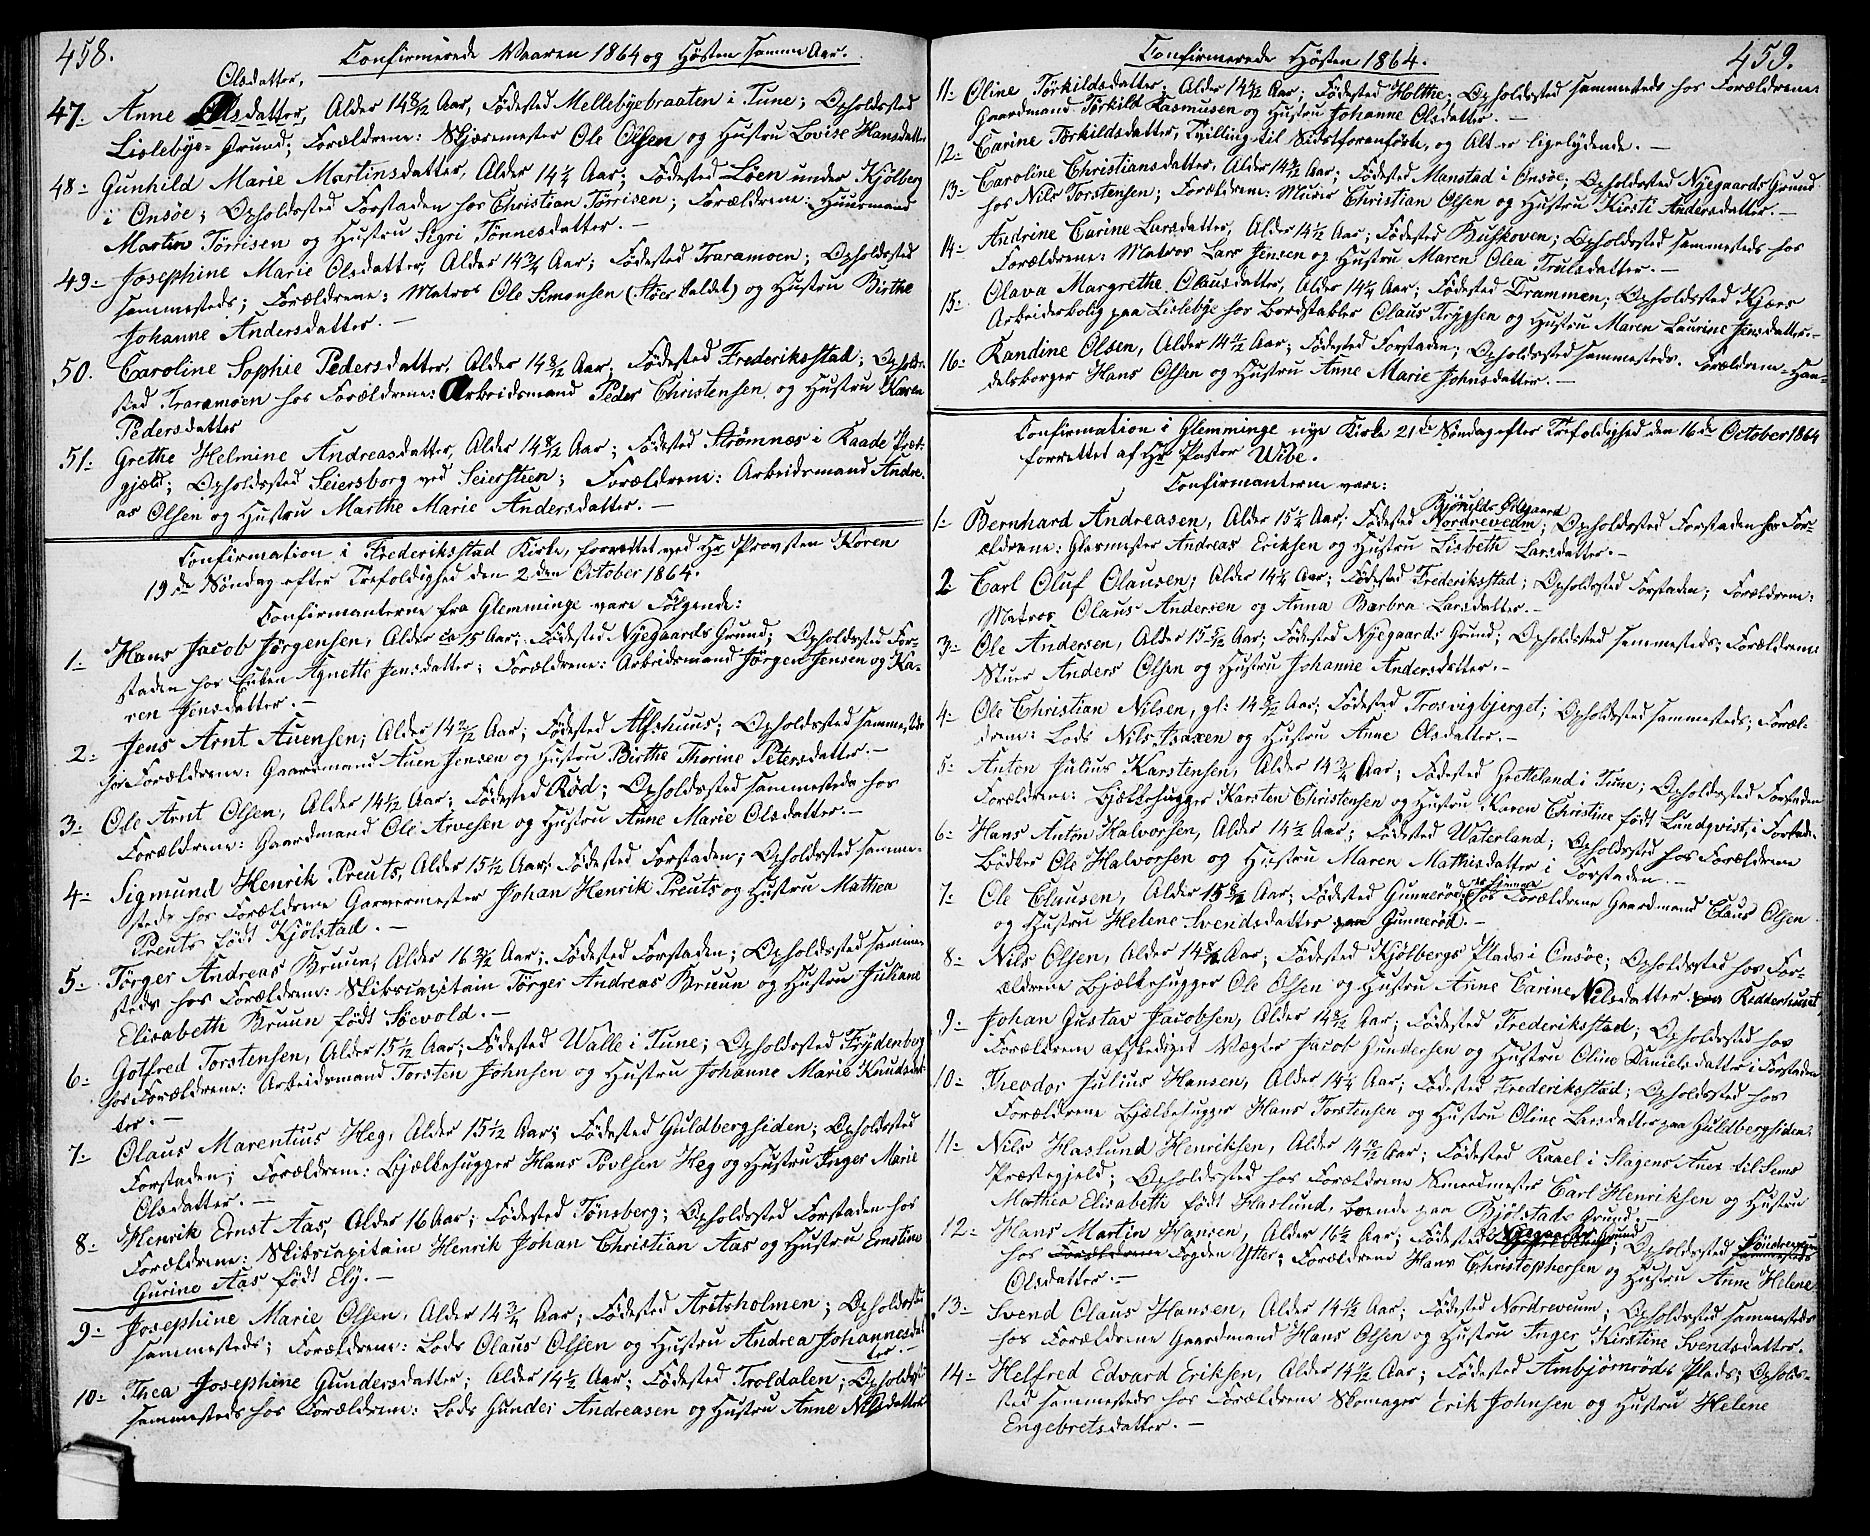 458.
Confirmerede Vaaren 1864 og Høsten samme Aar.
Olsdatter,
47- Anne Olsdatter, Alder 14 8/12 Aar, Fødested Mellebyebraaten i Tune; Opholdssted
Lislebye-Grund; Forældrene: Skjæremester Ole Olsen og Hustru Lovise Hansdatter
48- Gunhild Marie Martinsdatter, Alder 14 1/4 Aar; Fødested Löen under Kjölberg
i Onsöe; Opholdssted Forstaden hos Christian Törrisen; Forældrene: Huusmand
Martin Törrisen og Hustru Sigri Tönnesdatter. —
49- Josephine Marie Olsdatter, Alder 14 3/4 Aar; Fødested Traramoen; Opholdssted
sammesteds; Forældrene: Matros Ole Simonsen (Støer kaldet) og Hustru Birthe
Johanne Andersdatter. —
50. Caroline Sophie Pedersdatter, Alder 14 8/12 Aar; Fødested Frederiksstad; Opholds-
sted Traramoen hos Forældrene: Arbeidsmand Peder Christensen og Hustru Karen
Pedersdatter
51- Grethe Helmine Andreasdatter, Alder 14 8/12 Aar; Fødested Strømnæs i Raade Præst-
gjeld; Opholdssted Seiersborg ved Seiersteen; Forældrene: Arbeidsmand Andre-
as Olsen og Hustru Marthe Marie Andersdatter. —
Confirmation i Frederiksstad Kirke, forrettet ved Hr Provsten Koren
19de Søndag efter Trefoldighed den 2den October 1864.
Confirmanterne fra Glemminge vare Følgende:
1- Hans Jacob Jørgensen, Alder ca 15 Aar; Fødested Nyegaards Grund; Opholdssted For-
staden hos Enken Agnethe Jensdatter; Forældrene: Arbeidsmand Jörgen Jensen og Ka-
ren Jensdatter. —
2- Jens Arnt Auensen; Alder 14 2/12 Aar; Fødested Alfshuus; Opholdssted sammesteds
hos Forældrene: Gaardmand Auen Jensen og Hustru Birthe Thorine Petersdatter. —
3- Ole Arnt Olsen, Alder 14 1/2 Aar; Fødested Röd; Opholdssted sammesteds hos
Forældrene: Gaardmand Ole Arvesen og Hustru Anne Marie Olsdatter. —
4- Sigmund Henrik Preuts, Alder 15 1/2 Aar; Fødested Forstaden; Opholdssted samme-
steds hos Forældrene Garvermester Johan Henrik Preuts og Hustru Mathea
Preuts født Kjölstad. —
5- Törger Andreas Bruun, Alder 16 3/4 Aar; Fødested Forstaden; Opholdssted samme-
steds hos Forældrene: Skibscapitain Törger Andreas Bruun og Hustru Juliane
Elisabeth Bruun født Söevold. —
6- Gotfred Torstensen, Alder 15 1/2 Aar; Fødested Walle i Tune; Opholdssted Frydenberg
hos Forældrene: Arbeidsmand Torsten Johnsen og Hustru Johanne Marie Knudsdat-
ter. —
7- Olaus Marentius Heg, Alder 15 1/2 Aar; Fødested Guldbergsiden; Opholdssted
Forstaden; Forældrene: Bjelkehugger Hans Povlsen Heg og Hustru Inger Marie
Olsdatter. —
8- Henrik Ernst Aas, Alder 16 Aar; Fødested Tönsberg; Opholdssted Forstaden hos
Forældrene: Skibscapitain Henrik Johan Christian Aas og Hustru Ernstine
Gurine Aas født Ely. —
9- Josephine Marie Olsen, Alder 14 3/4 Aar; Fødested Aritsholmen; Opholdssted
sammesteds; Forældrene: Lods Olaus Olsen og Hustru Andrea Johannesdat-
ter. —
10- Thea Josephine Gundersdatter; Alder 14 1/2 Aar; Fødested Troldalen; Opholdssted
sammesteds hos Forældrene: Lods Gunder Andreasen og Hustru Anne Nilsdatter
459.
Confirmerede Høsten 1864.
11- Oline Törkildsdatter; Alder 14 1/2 Aar; Fødested Holthe; Opholdssted sammesteds hos Forældrene:
Gaardmand Törkild Rasmusen og Hustru Johanne Olsdatter. —
12- Carine Törkildsdatter, Tvilling til Sidstforanførte, og Alt er ligelydende. —
13- Caroline Christiansdatter, Alder 14 1/2 Aar; Fødested Manstad i Onsöe; Opholdssted Nyegaards Grund
hos Nils Torstensen; Forældrene: Murer Christian Olsen og Hustru Kirsti Andersdatter. —
14- Andrine Carine Larsdatter, Alder 14 1/2 Aar; Fødested Buskoven; Opholdssted sammesteds hos
Forældrene: Matros Lars Jensen og Hustru Maren Olea Trulsdatter. —
15- Olava Margrethe Olausdatter, Alder 14 1/4 Aar; Fødested Drammen; Opholdssted Kjærs
Arbeiderbolig paa Lislebye hos Bordstabler Olaus Trygsen og Hustru Maren Laurine Jensdatter. —
16- Randine Olsen, Alder 14 1/2 Aar; Fødested Forstaden; Opholdssted sammesteds. Forældrene: Han-
delsborger Hans Olsen og Hustru Anne Marie Johnsdatter. —
Confirmation i Glemminge nye Kirke 21de Søndag efter Trefoldighed den 16de October 1864
forrettet af Hr Pastor Wibe.
Confirmanterne vare:
Ødegaard
1- Bernhard Andreasen, Alder 15 1/4 Aar; Fødested Nordreveum; Opholdssted Forstaden hos For-
ældrene: Glarmester Andreas Eriksen og Hustru Lisbeth Larsdatter. —
2 Carl Oluf Olausen; Alder 14 1/4 Aar; Fødested Frederiksstad; Opholdssted Forstaden; Forældrene:
Matros Olaus Andersen og Anna Barbra Larsdatter. —
3- Ole Andersen, Alder 15 5/12 Aar; Fødested Nyegaards Grund; Opholdssted sammesteds; Forældrene:
Stuer Anders Olsen og Hustru Johanne Andersdatter. —
4- Ole Christian Nilsen, gl: 14 8/12 Aar; Fødested Trosvigbjerget; Opholdssted sammesteds; Foræl-
drene: Lods Nils Isaxen og Hustru Anne Olsdatter. —
5- Anton Julius Karstensen, Alder 14 3/4 Aar; Fødested Greetteland i Tune; Opholdssted Forstaden
Forældrene: Bjelkehugger Karsten Christensen og Hustru Karen Christine født Lundqvist, i Forstad.
6- Hans Anton Halvorsen, Alder 14 1/2 Aar; Fødested Waterland; Opholdssted hos Forældrene
Bødker Ole Halvorsen og Hustru Maren Mathisdatter i Forstaden. —
7- Ole Clausen, Alder 15 8/12 Aar; Fødested Gunnerød; hos Forældrene Gaardmand Claus Olsen
og Hustru Helene Svendsdatter paa Gunnerød. —
8- Nils Olsen, Alder 14 8/12 Aar; Fødested Kjölbergs Plads i Onsöe; Opholdssted hos For-
ældrene Bjelkehugger Ole Olsen og Hustru Anne Carine Nilsdatter paa Ridderhuset
9- Johan Gustav Jacobsen, Alder 14 8/12 Aar; Fødested Frederiksstad; Opholdssted hos
Forældrene afskediget Vægter Jacob Gundersen og Hustru Oline Danielsdatter i Forstaden
10- Theodor Julius Hansen, Alder 14 1/4 Aar; Fødested Frederiksstad; Opholdssted hos
Forældrene Bjelkehugger Hans Torstensen og Hustru Oline Larsdatter paa Guldbergsiden.
11- Nils Haslund Henriksen, Alder 14 10/12 Aar; Fødested Raael i Slagens Aner til Sems
Præstegjeld; Opholdssted hos Forældrene Smedmester Carl Henriksen og Hustru
Mathia Elisabeth født Haslund, boende paa Bjölstads Grund. —
12- Hans Martin Hansen, Alder 16 1/2 Aar; Fødested Nyegaards Grund; Opholdssted
hos Forældrene Fogden Ytter; Forældrene Hans Christophersen og Hustru Anne Helene
Olsdatter. —
13- Svend Claus Hansen, Alder 14 1/2 Aar; Fødested Nordreveum; Opholdssted sammesteds
hos Forældrene Gaardmand Hans Olsen og Hustru Inger Kirstine Svendsdatter.
14- Helfred Edvard Eriksen, Alder 14 1/2 Aar; Fødested Ambjørnröds Plads; Opholds-
sted sammesteds hos Forældrene Skomager Erik Johnsen og Hustru Helene
Engebretsdatter. —